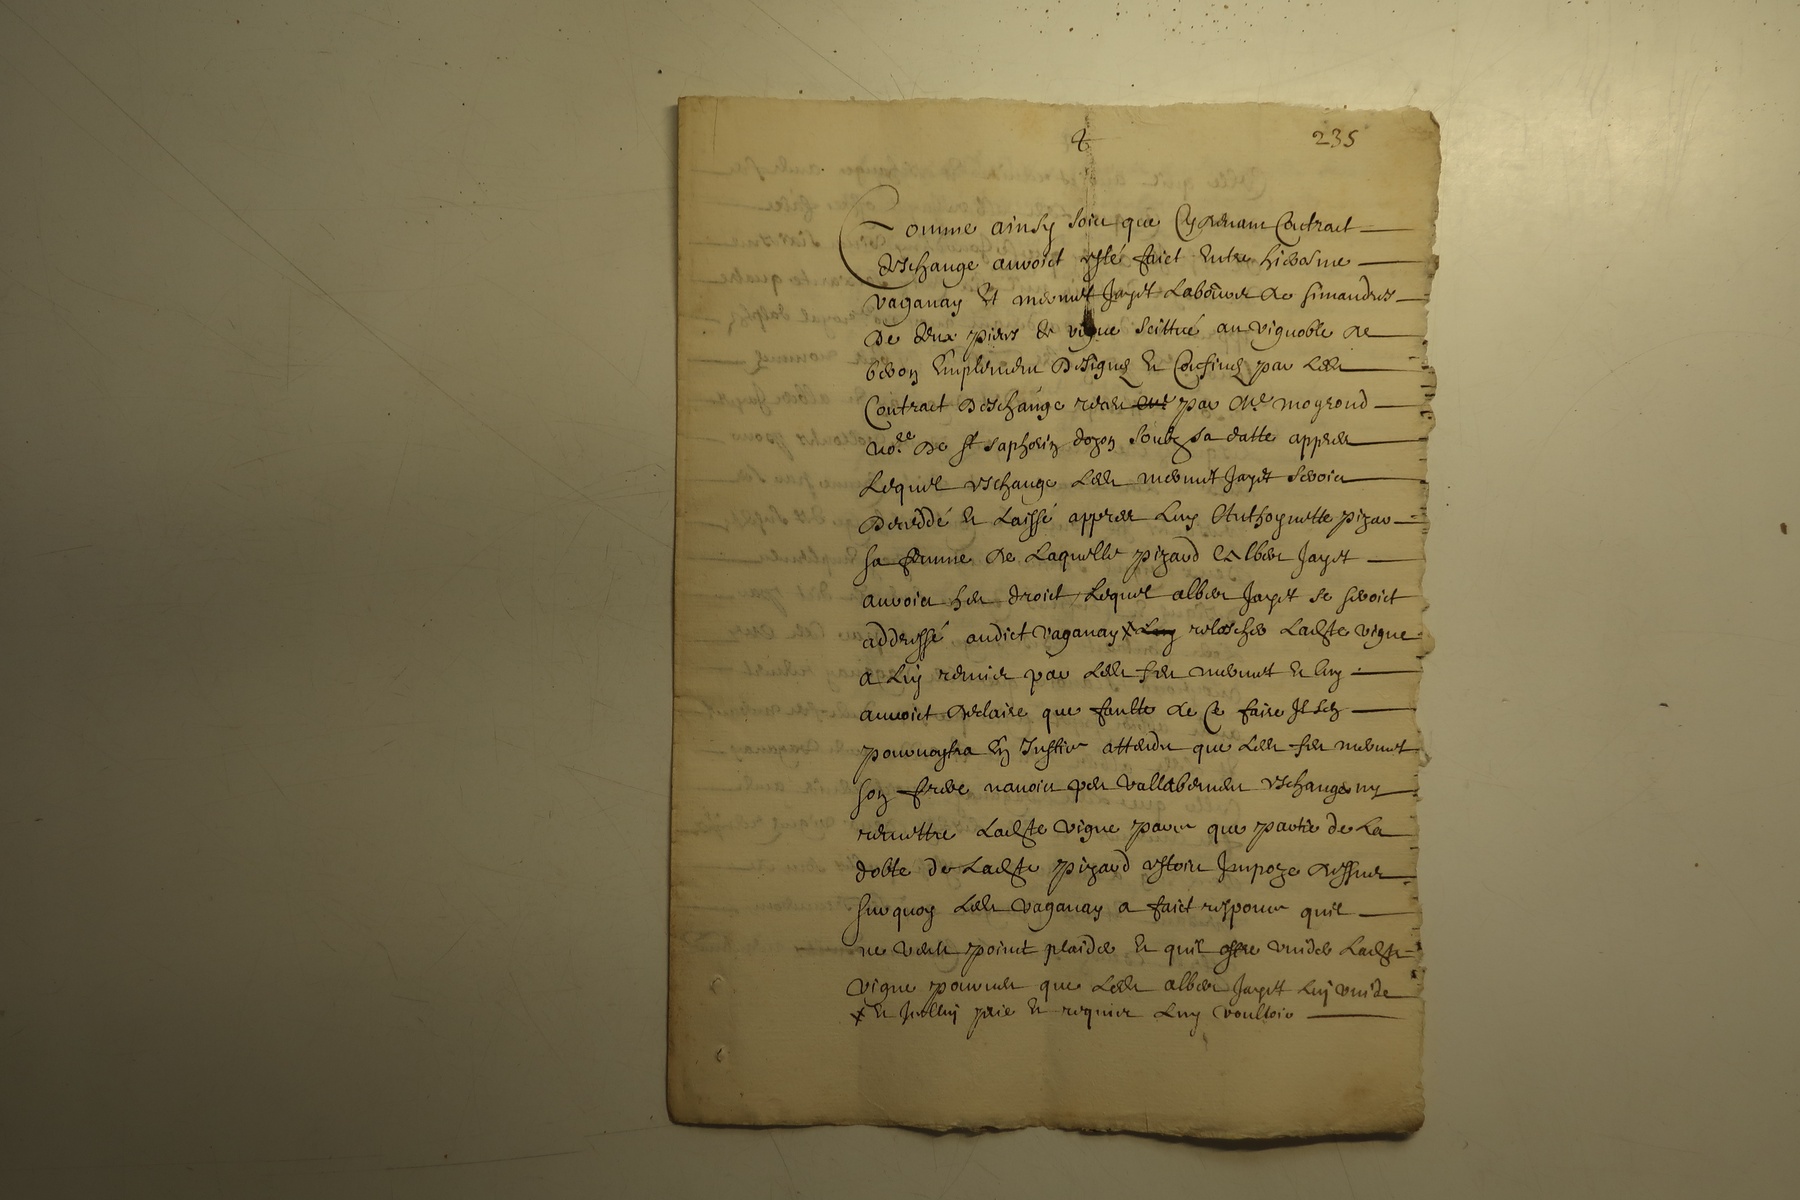 235
Comme ainsy soict que Cydevant Contract
deschange auroict esté faict Entre hierosme
vaganay Et mermet Jayet Laboureur de simandres
De deux pieces de vigne scittué au vignoble de
Emplement designes et Confines par Ledt
Contract deschange receu par Me moyroud
nore de st saphorin dozon soubz sa datte appres
Lequel eschange Ledt mermet Jayet seroict
decedde et Laissé appres Luy Anthoynette pizard
sa femme de Laquelle pizard Albert Jayet
auroict droict Lequel albert Jayet se seroict
addressé audict vaganay x relascher Ladte vigne
a Luy remise par Ledt feu mermet et luy
auroict declaire que faulte de Ce faire Il sen
pourvoyra En Justice attendu que Ledt feu mermet
son frere navoict peu vallablement eschanger ny
remettre Ladte vigne parce que partie de La
dobte de Ladte pizard estoict Impoze dessus
surquoy Ledt vaganay a faict responce quil
ne veult point plaider et quil offre vuider Ladte
vigne pourveu que Ledt albert Jayet Luy vuide
x et Icelluy prie et requier Luy voulloir